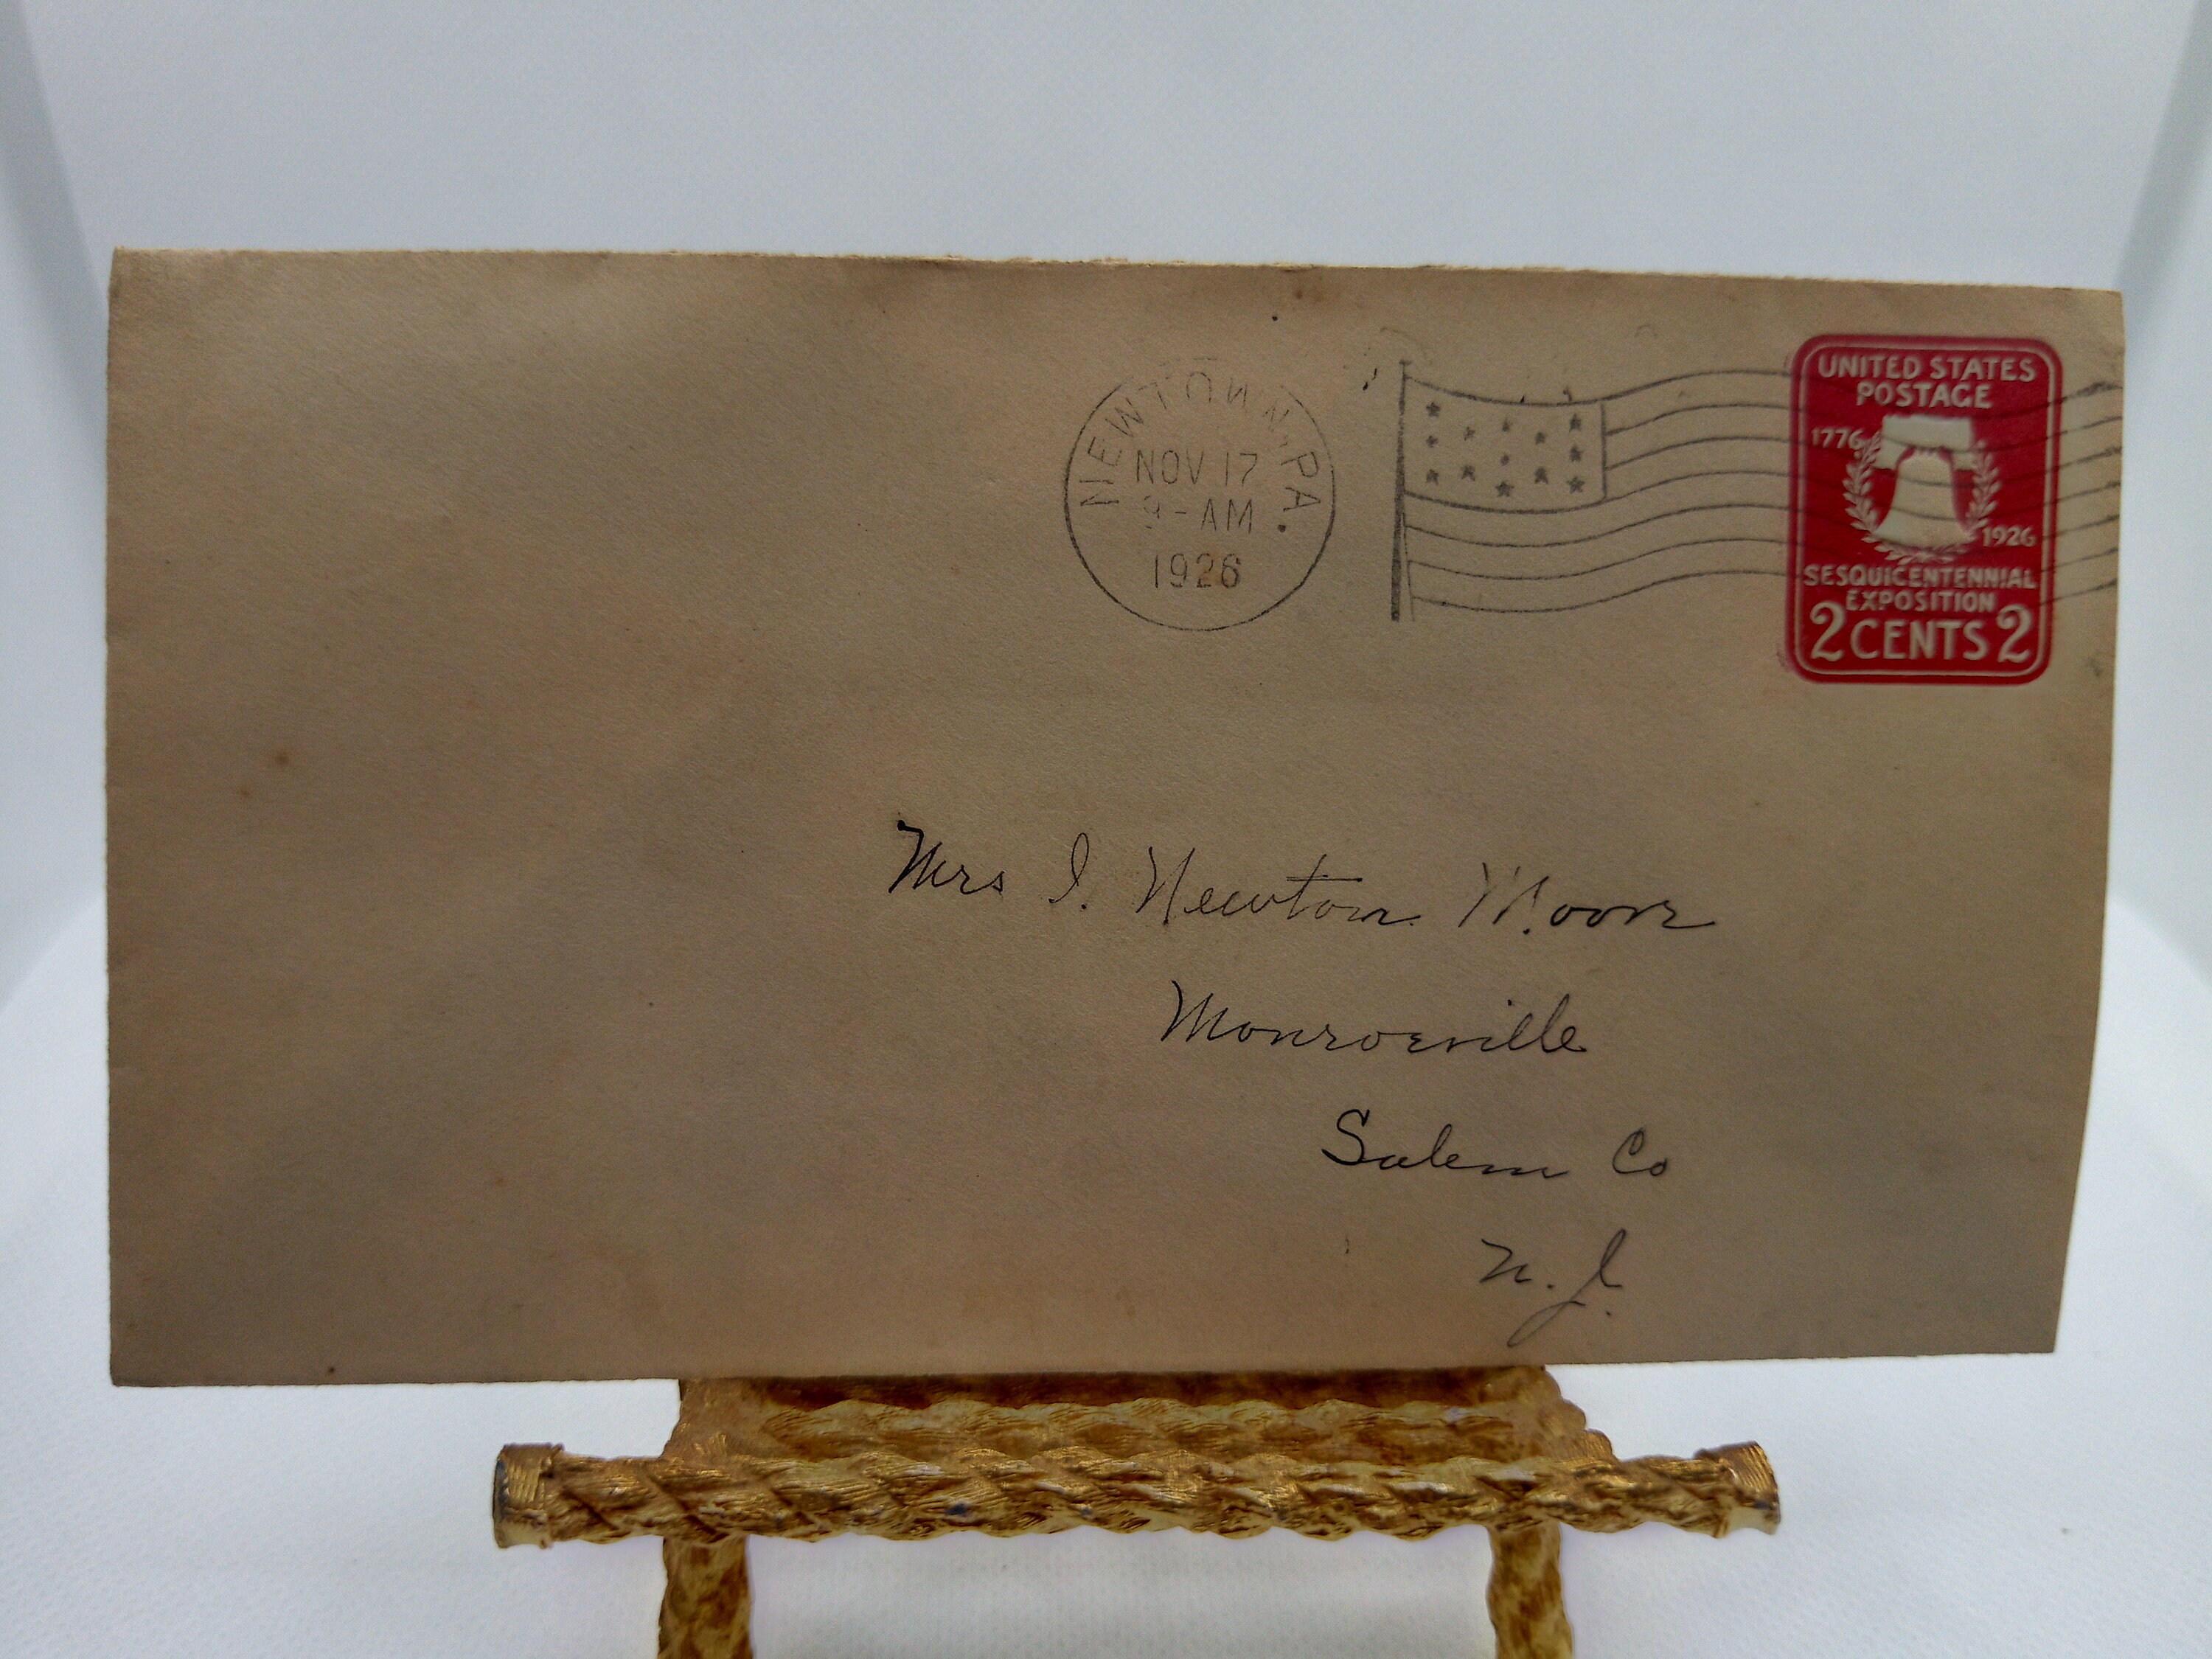 NEWTOWN, PA.
NOV 17
9-AM
1926
UNITED STATES
POSTAGE
1776
1926
SESQUICENTENNIAL
EXPOSITION
2 CENTS 2
Mrs I. Newton Moore
Monroeville
Salem Co
N. J.